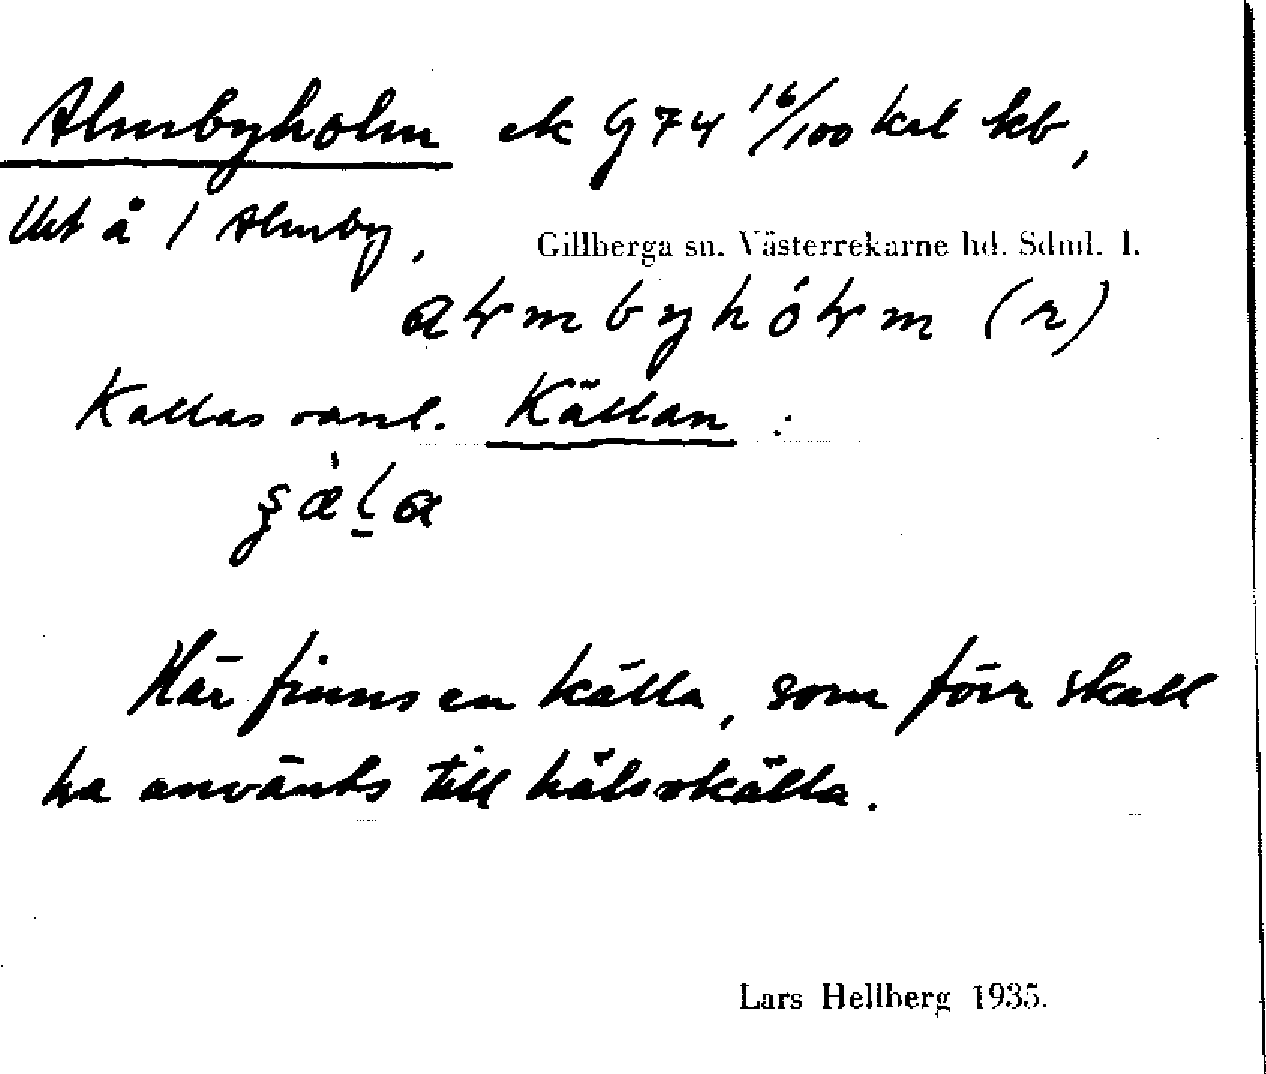 Almbyholm ek G74 16/100 krl kb,
Ukt å 1 Almby,
Gillberga sn. Västerrekarne hd. Sdml. 1.
Kallas vanl. Källan :
Här finns en källa, som förr skall
ha använts till hälsokälla.
Lars Hellberg 1935.